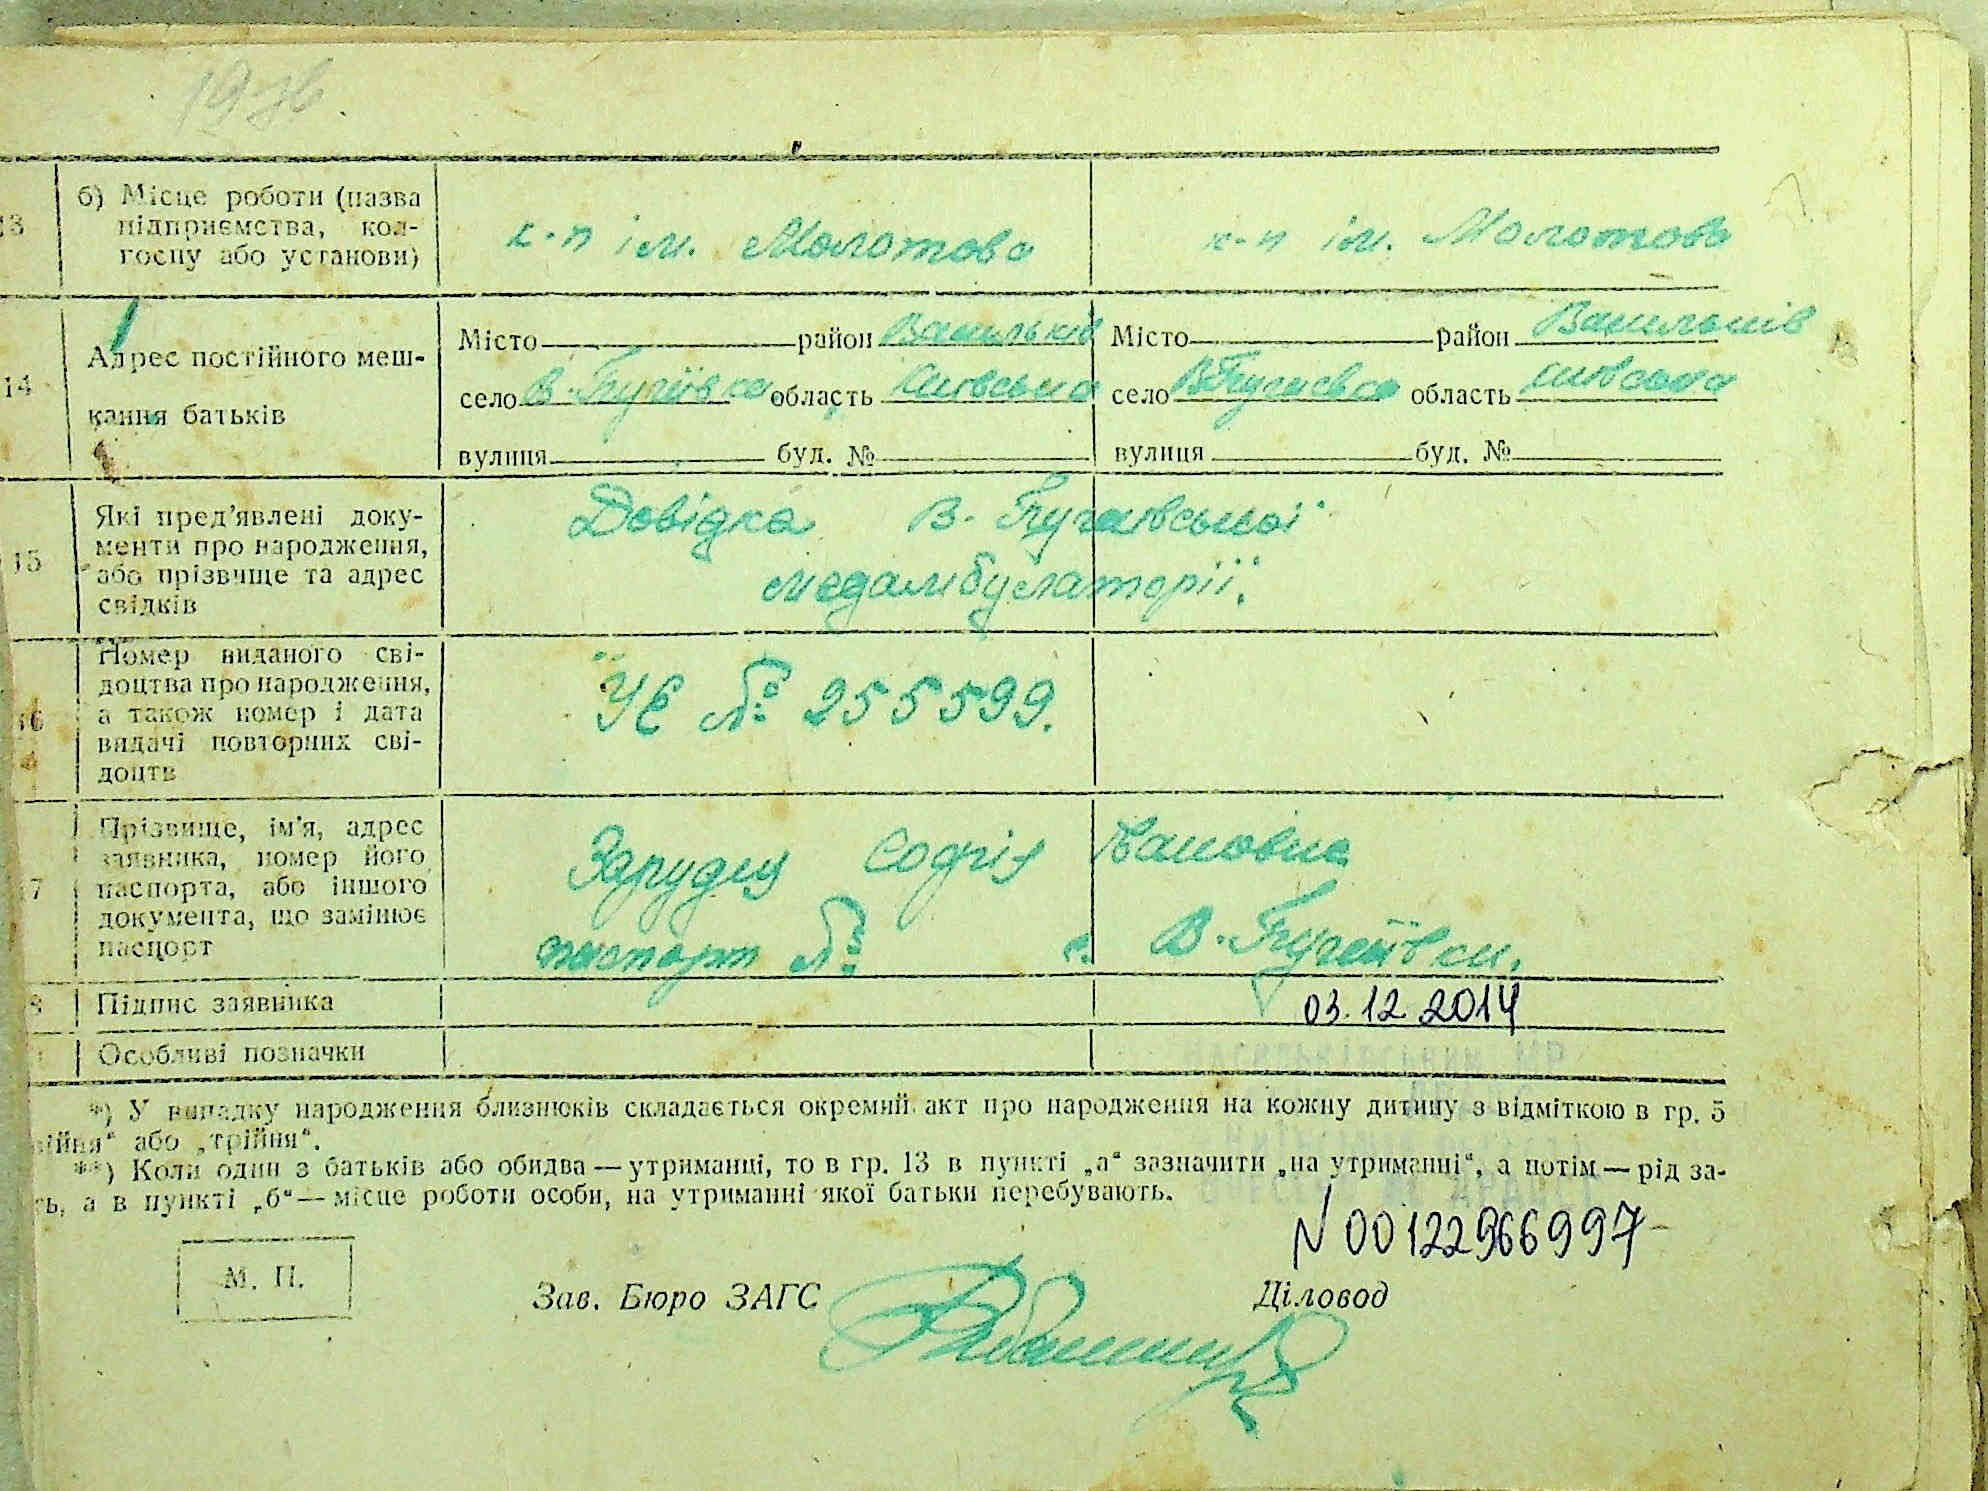 13 б) Місце роботи (назва підприємства, колгоспу або установи)
к-п ім. Молотова
к-п ім. Молотова
14 Адрес постійного мешкання батьків
Місто район Васильків Місто район Васильків
село область Київська село область Київська
вулиця буд. № вулиця буд. №
15 Які пред'явлені доку-
менти про народження,
або прізвище та адрес
свідків
Довідка В.
медамбулаторії.
16 Номер виданого сві-
доцтва про народження,
а також номер і дата
видачі повторних сві-
доцтв
УЄ № 255599.
17 Прізвище, ім'я, адрес
заявника, номер його
паспорта, або іншого
документа, що замінює
паспорт
Софія Івановна
паспорт № с. В.
Підпис заявника
03.12 2014
Особливі позначки
*) У випадку народження близнюків складається окремий акт про народження на кожну дитину з відміткою в гр. 5
ійня“ або „трійня“.
**) Коли один з батьків або обидва — утриманці, то в гр. 13 в пункті „а“ зазначити „на утриманні“, а потім — рід за-
ть, а в пункті „б“ — місце роботи особи, на утриманні якої батьки перебувають.
N 00122966997
М. П.
Зав. Бюро ЗАГС
Діловод